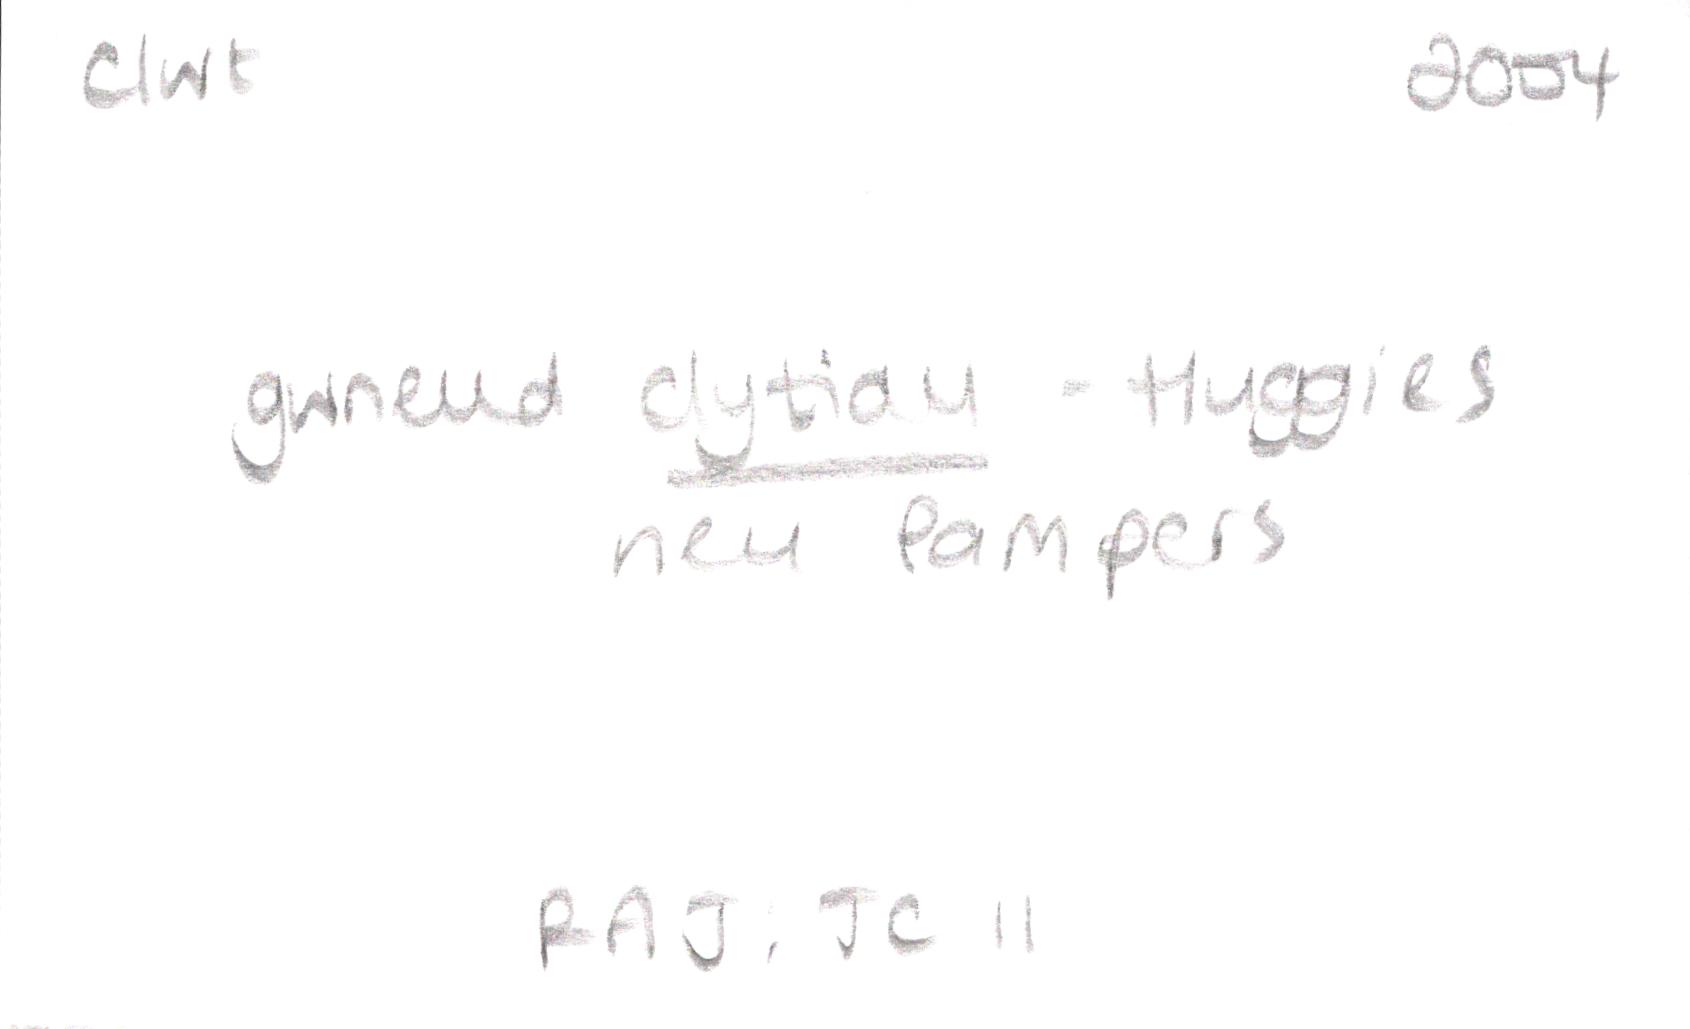 clwt 2004
gwneud clytiau - Huggies
neu Pampers
RAJ: JC 11